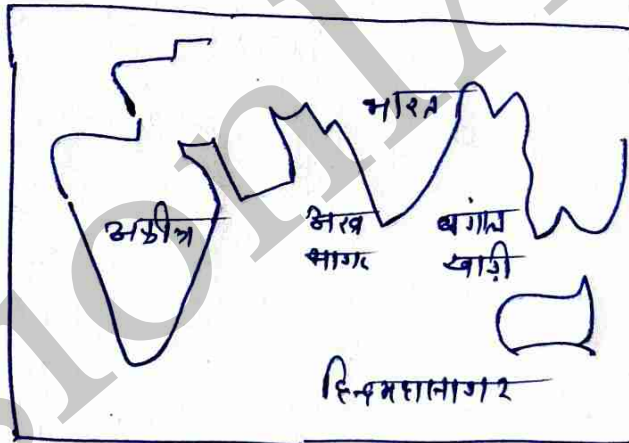 भारत
अफ्रीका
अरब
सागर
बंगाल
खाड़ी
हिन्दमहासागर